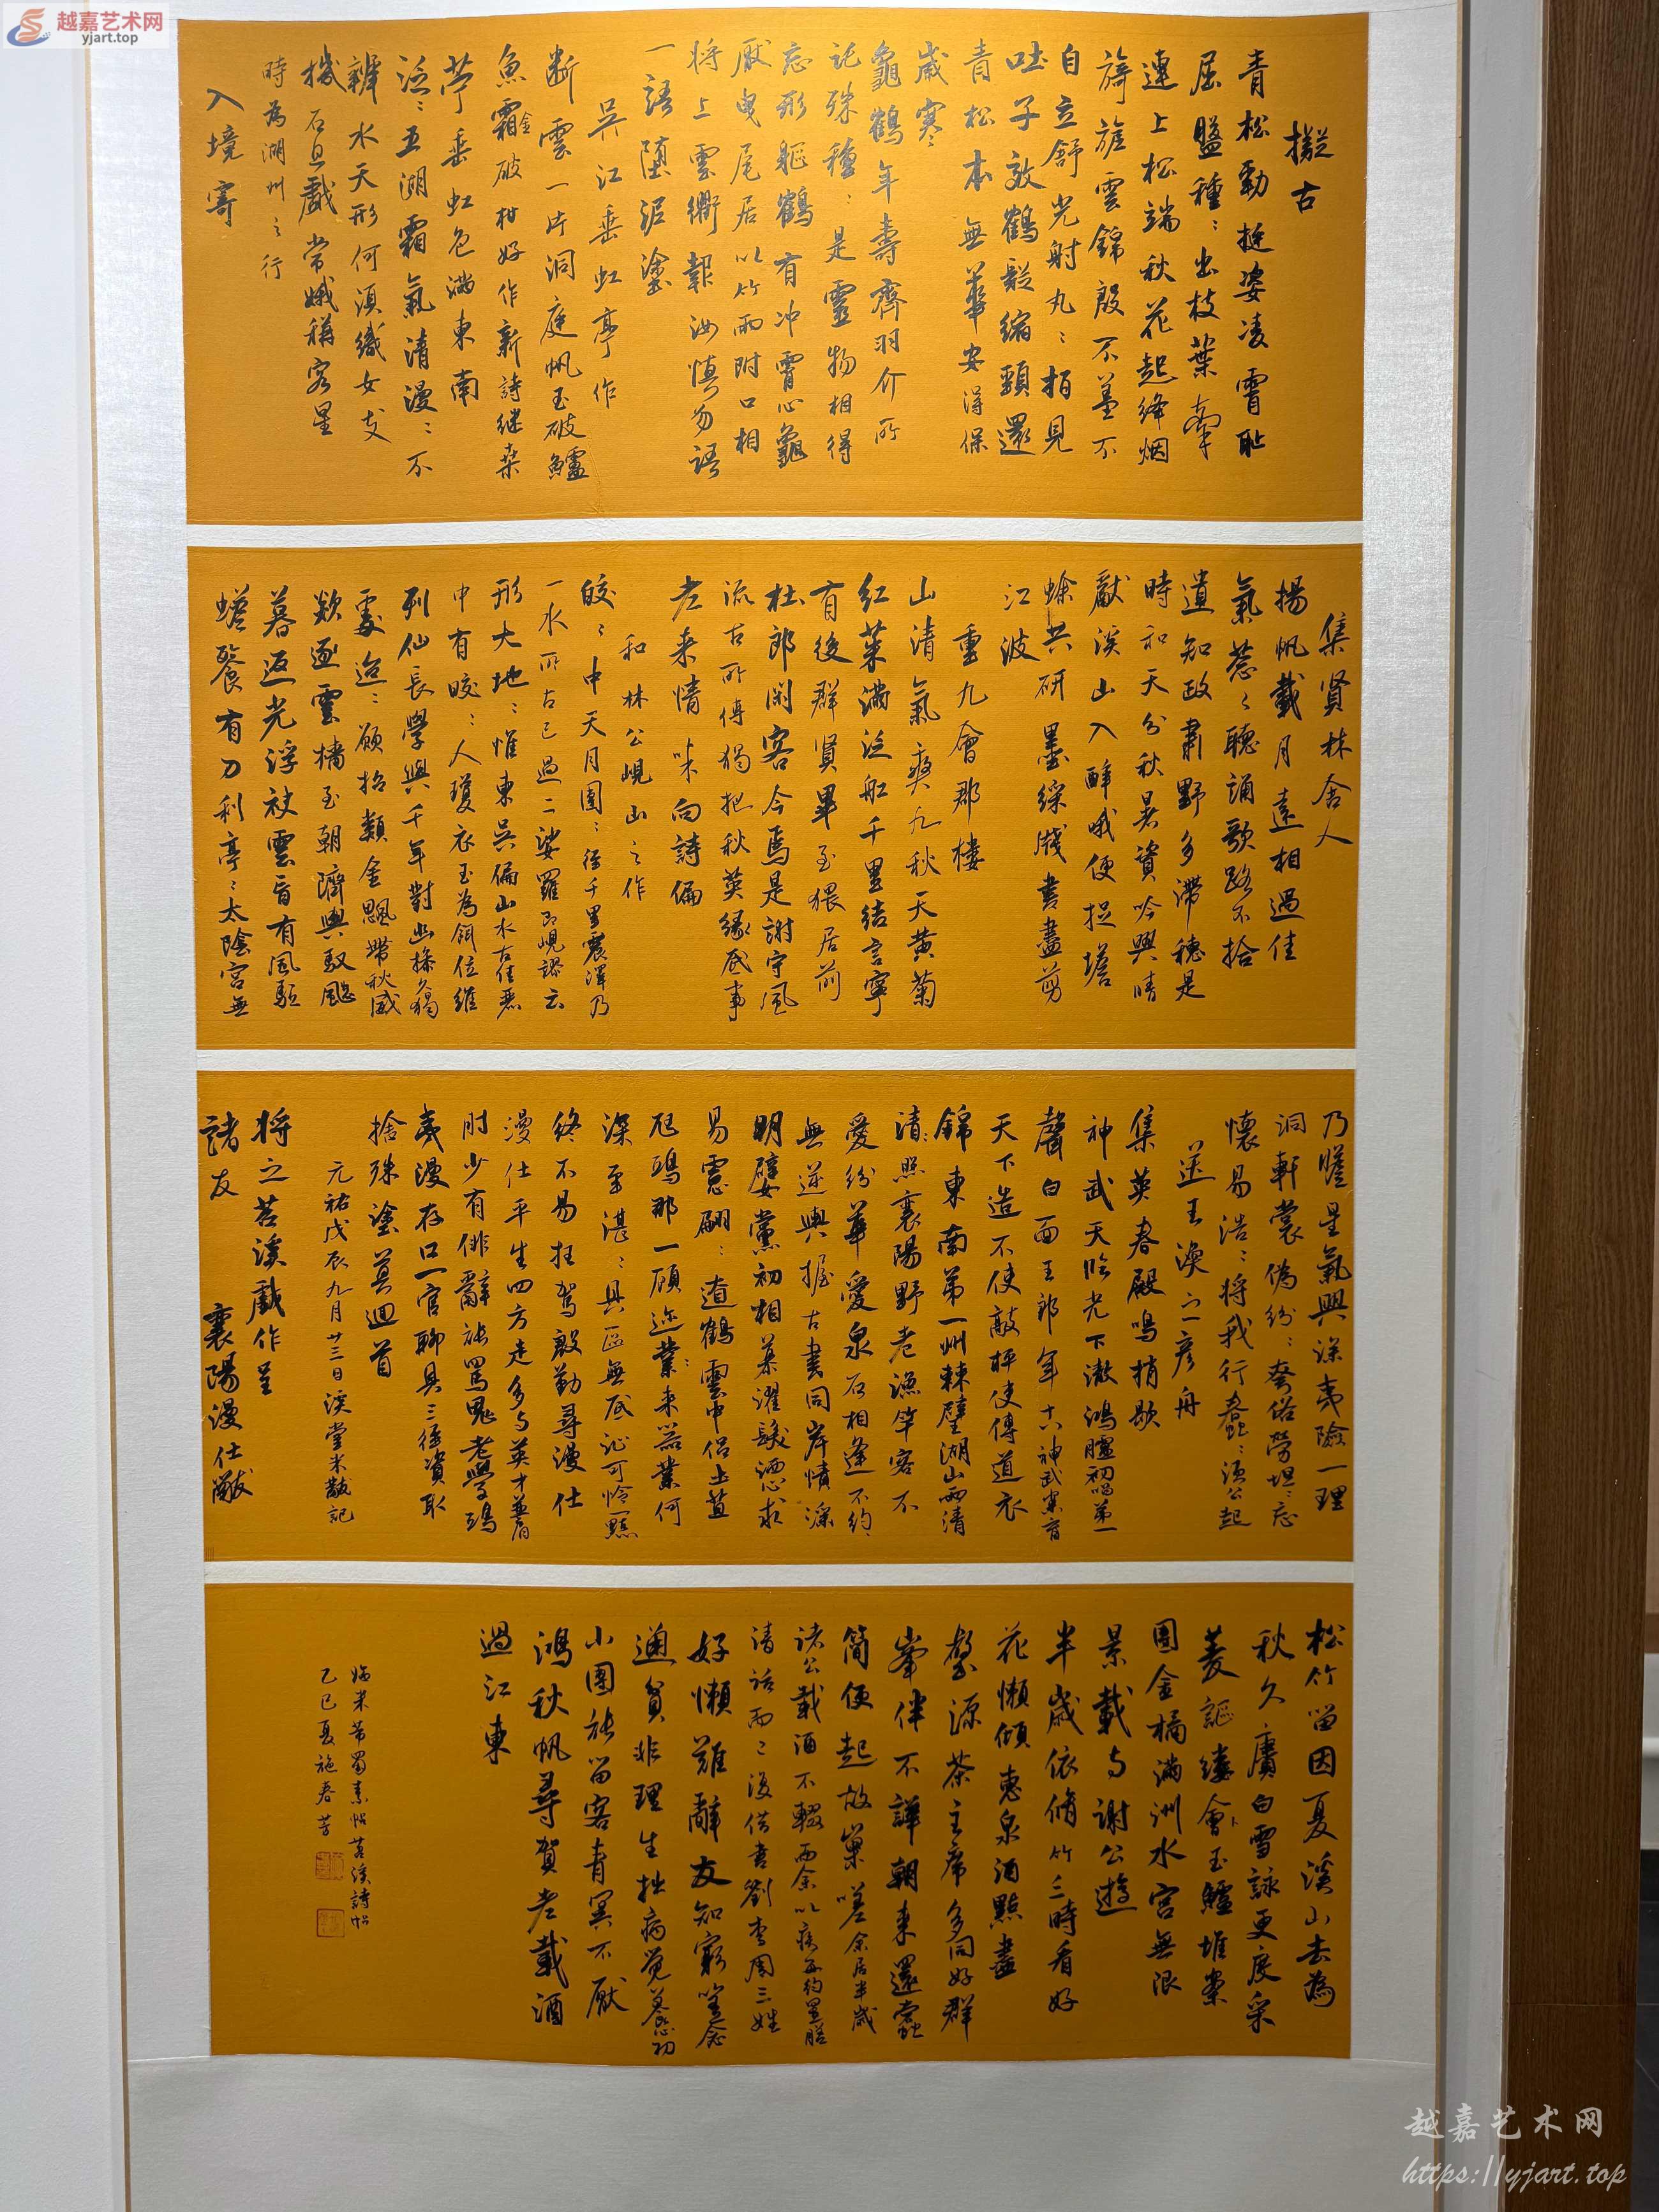 越嘉艺术网
yjart.top
擬古
青松勁挺姿凌霄耻
屈盤種〻出枝葉牽
連上松端秋花起絳烟
旖旎雲錦殷不羞不
自立舒光射丸〻柏見
吐子效鶴疑縮頸還
青松本無華安得保
歲寒
龜鶴年壽齊羽介所
託殊種〻是靈物相得
忘形軀鶴有冲霄心龜
厭曳尾居以竹兩附口相
將上雲衢報汝慎勿語
一語墮泥塗
吳江垂虹亭作
断雲一片洞庭帆玉破鱸
魚霜金破柑好作新詩継桑
苧垂虹色滿東南
泛〻五湖霜氣清漫〻不
辨水天形何須織女支
機石且戲常娥稱客星
時為湖州之行
入境寄
集賢林舍人
揚帆載月遠相過佳
氣葱〻聽誦歌路不拾
遺知政肅野多滯穗是
時和天分秋暑資吟興晴
獻溪山入醉哦便捉蟾
蜍共研墨綵牋書盡剪
江波
重九會郡樓
山清氣爽九秋天黄菊
红茱滿泛船千里結言寧
有後群賢畢至猥居前
杜郎閑客今焉是謝守風
流古所傳獨把秋英緣底事
老来情味向詩偏
和林公峴山之作
皎〻中天月團〻徑千里震澤乃
一水所占已過二娑羅即峴謬云
形大地〻惟東吳偏山水古佳麗
中有皎〻人瓊衣玉為餌位維
列仙長學與千年對幽操久獨
處迢〻願招類金飈帶秋威
欻逐雲檣至朝隮輿馭飈
暮返光浮袂雲盲有風驅
蟾餮有刀利亭〻太陰宮無
乃瞻星氣興深夷險一理
洞軒裳偽紛〻夸俗勞坦〻忘
懷易浩〻將我行蠢〻須公起
送王渙之彦舟
集英春殿鳴梢歇
神武天臨光下澈鴻臚初唱第一
聲白面王郎年十八神武樂育
天下造不使敲枰使傳道衣
錦東南第一州棘璧湖山兩清
清照襄陽野老漁竿客不
愛紛華愛泉石相逢不約
無逆輿握古書同岸幘淫
朋嬖黨初相慕濯髮灑心求
易慮翩〻遼鶴雲中侣土苴
尫鴟那一顧迩〻業来器業何
深至湛〻具區無底沚可憐一點
終不易枉駕殷勤尋漫仕
漫仕平生四方走多与英才並肩
肘少有俳辭能罵鬼老學鴟
夷漫存口一官聊具三徑資取
捨殊塗莫廻首
元祐戊辰九月廿三日溪堂米黻記
將之苕溪戲作呈
諸友 襄陽漫仕黻
松竹留因夏溪山去為
秋久賡白雪詠更度采
菱謳縷會玉鱸堆案
團金橘滿洲水宫無限
景載与謝公遊
半歲依脩竹三時看好
花懶傾惠泉酒點盡
壑源茶主席多同好群
峯伴不譁朝来還蠹
簡便起故巢嗟余居半歲
諸公載酒不輟而余以疾每約置膳
清話而〻復借書劉李周三姓
好懶難辭友知窮豈念
通貧非理生拙病覺養心功
小圃能留客青冥不厭
鴻秋帆尋賀老載酒
過江東
臨米芾蜀素帖苕溪詩帖
乙巳夏施春芳
越嘉艺术网
https://yjart.top